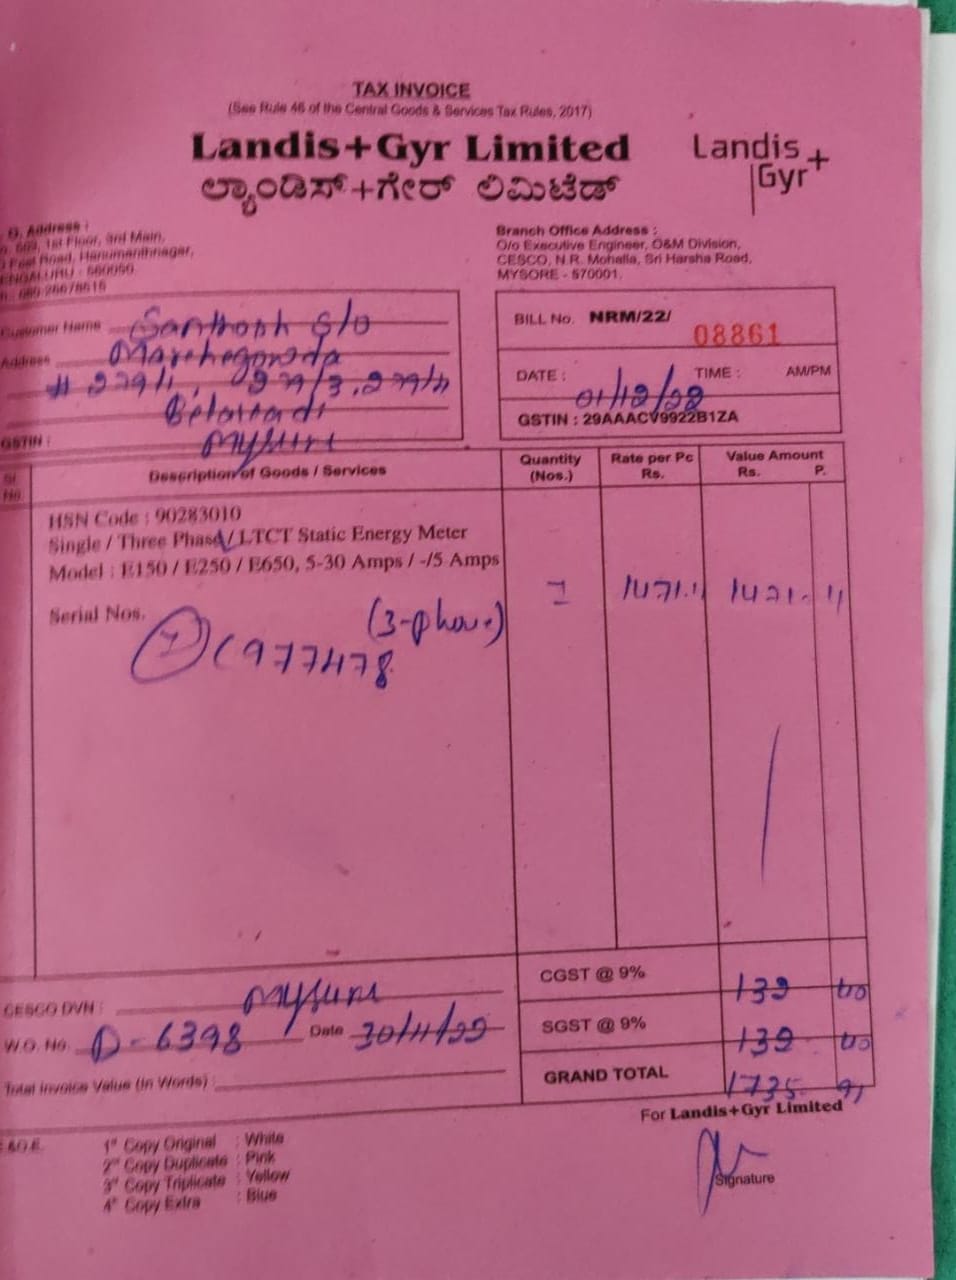 TAX INVOICE
(See Rule 46 of the Central Goods & Services Tax Rules, 2017)
Landis+Gyr Limited
ಲ್ಯಾಂಡಿಸ್+ಗೇರ್ ಲಿಮಿಟೆಡ್
Landis
Gyr+
Address :
1st Floor, 3rd Main,
Road, Hanumanthnagar,
560050.
Branch Office Address :
O/o Executive Engineer, O&M Division,
CESCO, N.R. Mohalla, Sri Harsha Road,
MYSORE - 570001.
Customer Name Santhosh S/o
Address
Mysuru
GSTIN :
BILL No. NRM/22/ 08861
DATE : 01/12/22 TIME : AM/PM
GSTIN : 29AAACV9922B1ZA
Sl. No. Description of Goods / Services Quantity (Nos.) Rate per Pc Rs. Value Amount Rs. P.
HSN Code : 90283010
Single / Three Phase / LTCT Static Energy Meter
Model : E150 / E250 / E650, 5-30 Amps / -/5 Amps
1471.11 1471. 11
Serial Nos.
(3-phase)
977478
CGST @ 9% 132 40
SGST @ 9% 132 40
GRAND TOTAL 1735 91
CESCO DVN : Mysuru
W.O. No. D-6398 Date 30/11/22
Total Invoice Value (in Words) :
For Landis+Gyr Limited
Signature
E&O.E.
1st Copy Original : White
2nd Copy Duplicate : Pink
3rd Copy Triplicate : Yellow
4th Copy Extra : Blue